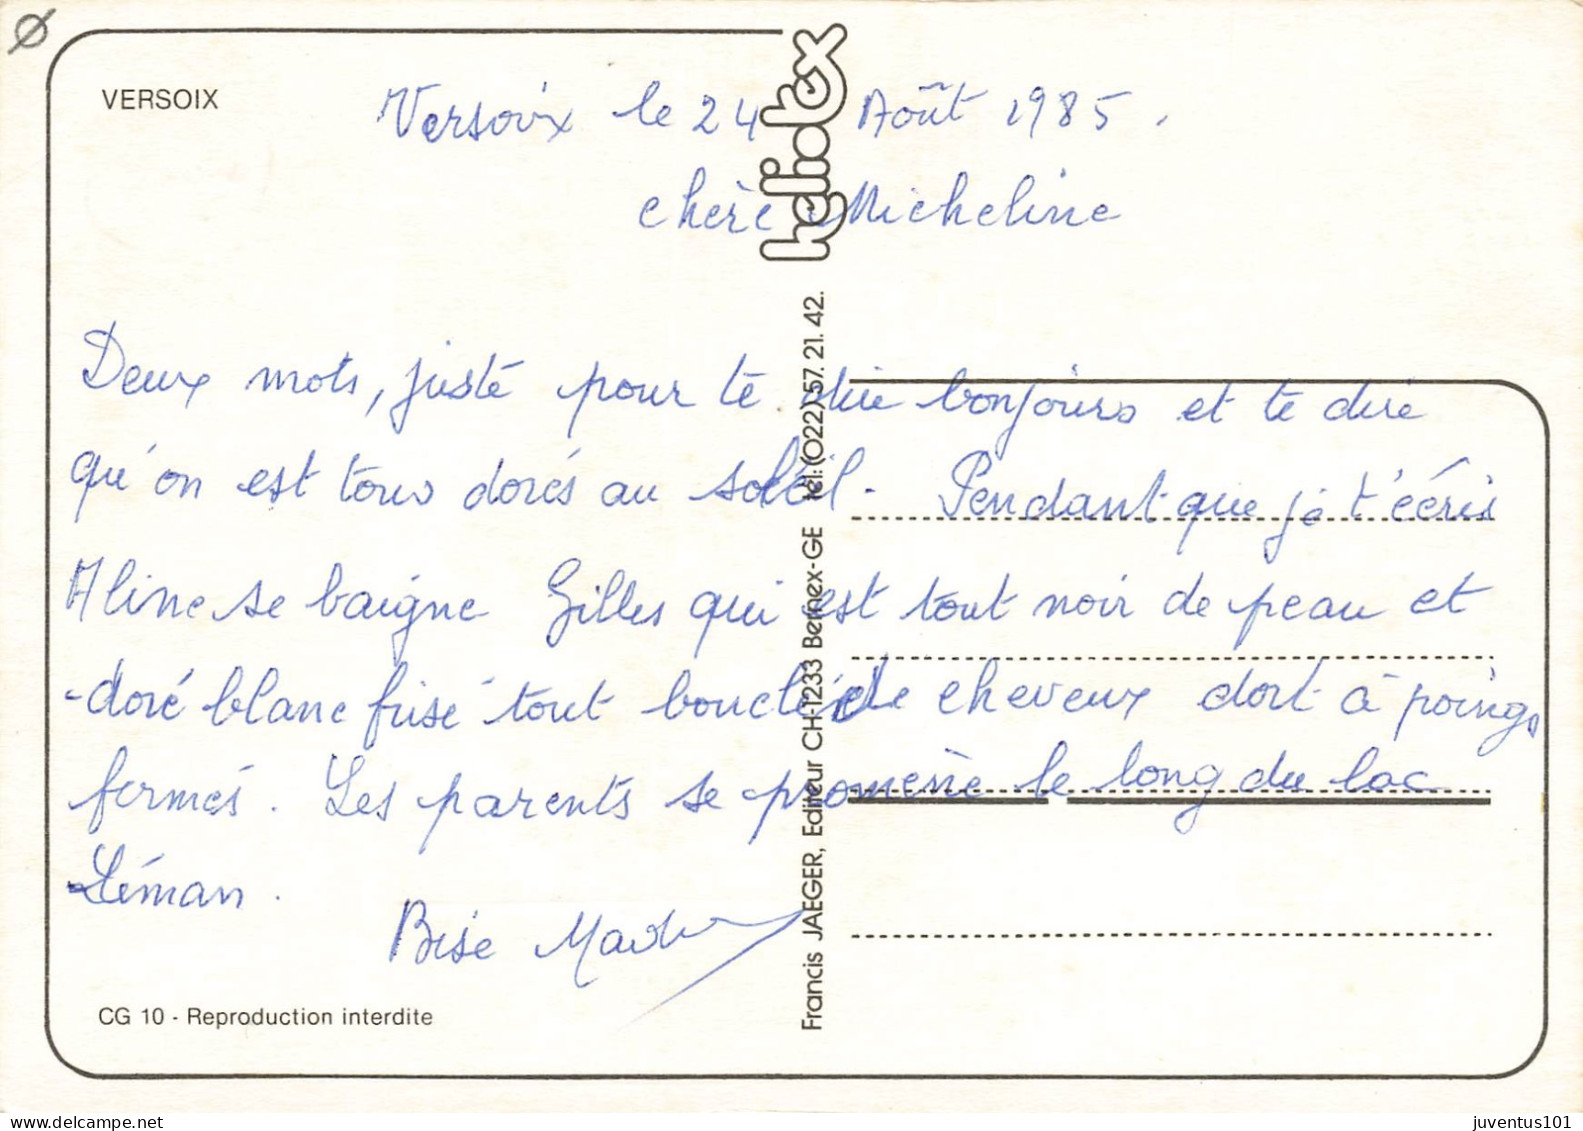 VERSOIX
Versoix le 24 Août 1985.
chère Micheline
Deux mots, juste pour te dire bonjours et te dire
qu'on est tous dorés au soleil. Pendant que je t'écris
Aline se baigne Gilles qui est tout noir de peau et
doré blanc frisé tout bouclé de cheveux dort à poings
fermés. Les parents se promène le long du lac
Léman.
Bise
CG 10 - Reproduction interdite
heliotex
Francis JAEGER, Editeur CH-1233 Bernex-GE tél: (022) 57. 21. 42.
juventus101